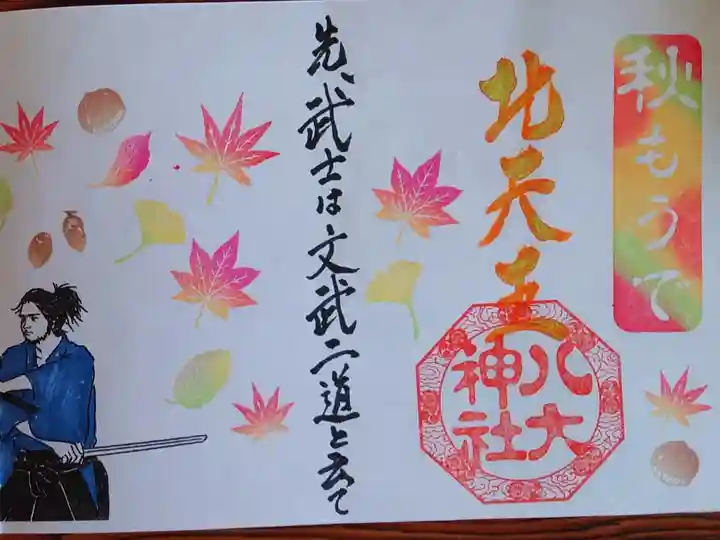 秋もうで
北天王
八大
神社
先、武士は文武二道と云て